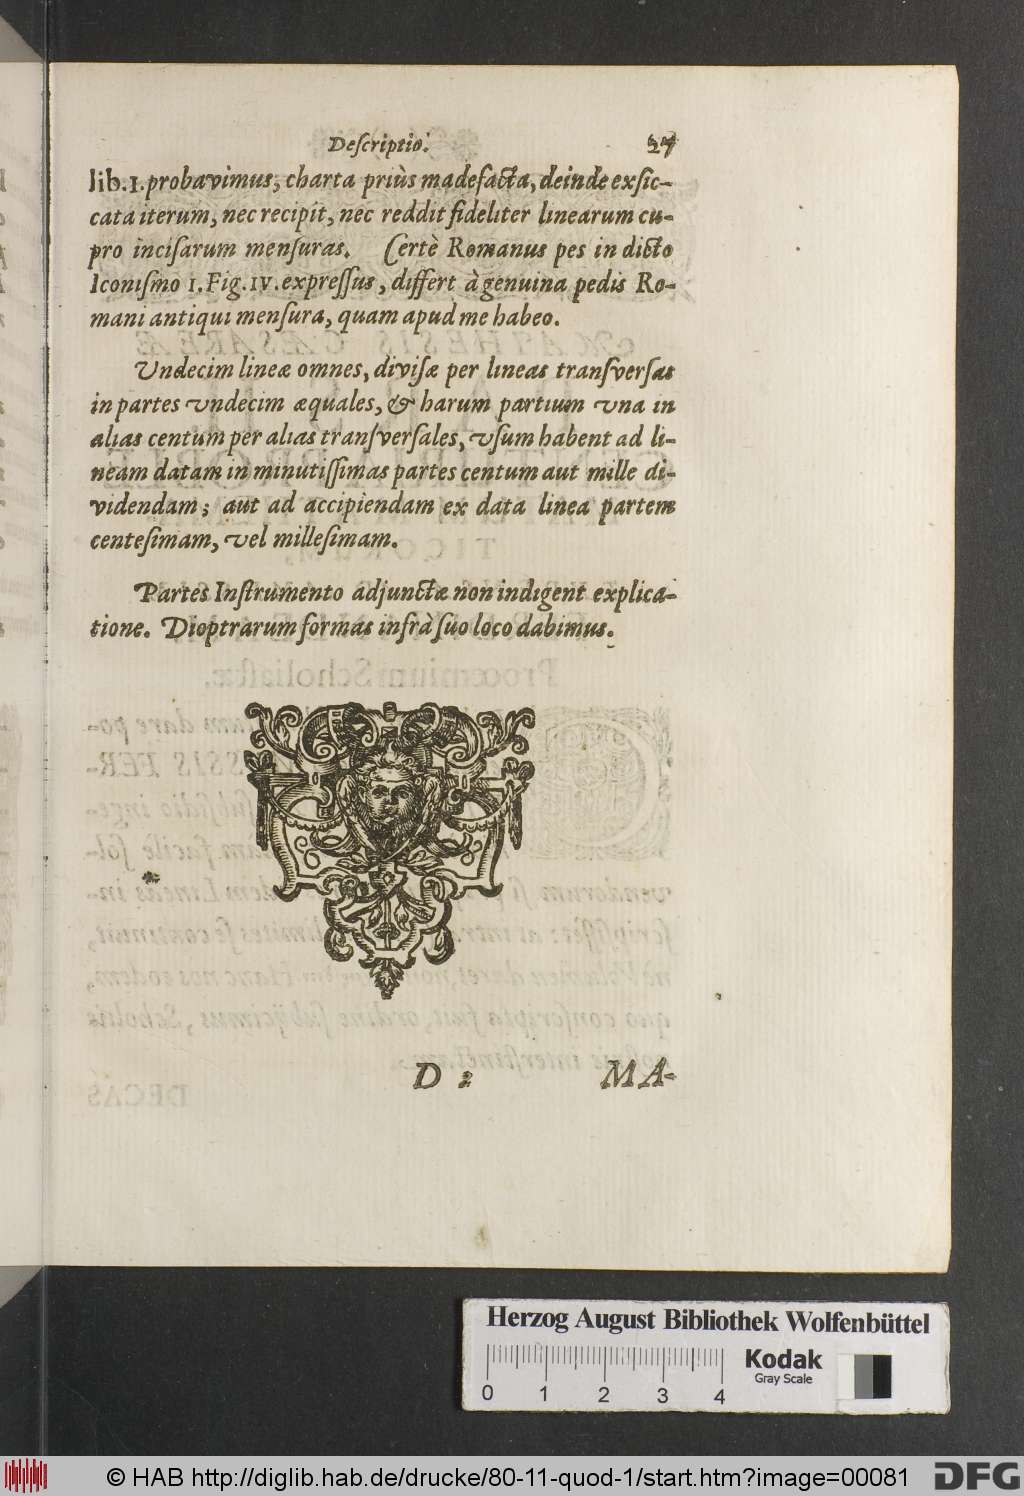 Descriptio. 27
lib. 1. probavimus, charta priùs madefacta, deinde exsic-
cata iterum, nec recipit, nec reddit fideliter linearum cu-
pro incisarum mensuras. Certè Romanus pes in dicto
Iconismo 1. Fig. IV. expressus, differt à genuina pedis Ro-
mani antiqui mensura, quam apud me habeo.
Undecim lineæ omnes, divisæ per lineas transversas
in partes undecim æquales, & harum partium una in
alias centum per alias transversales, usum habent ad li-
neam datam in minutissimas partes centum aut mille di-
videndam; aut ad accipiendam ex data linea partem
centesimam, vel millesimam.
Partes Instrumento adjunctæ non indigent explica-
tione. Dioptrarum formas infrà suo loco dabimus.
D 2 MA-
Herzog August Bibliothek Wolfenbüttel
Kodak
Gray Scale
0 1 2 3 4
© HAB http://diglib.hab.de/drucke/80-11-quod-1/start.htm?image=00081
DFG